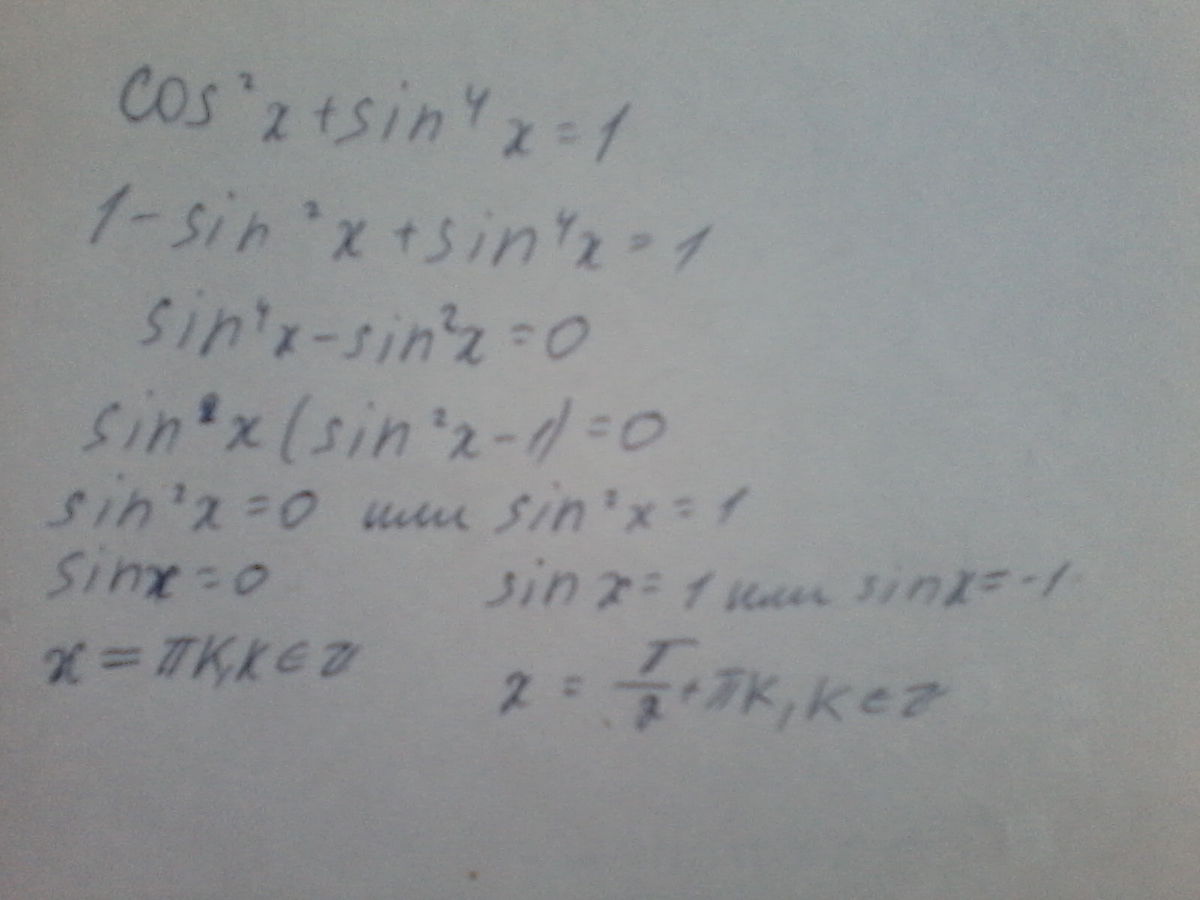 cos²x+sin⁴x=1
1-sin²x+sin⁴x=1
sin⁴x-sin²x=0
sin²x(sin²x-1)=0
sin²x=0 или sin²x=1
sinx=0 sin x=1 или sinx=-1
x=πk,k∈z x=π/2+πk,k∈z